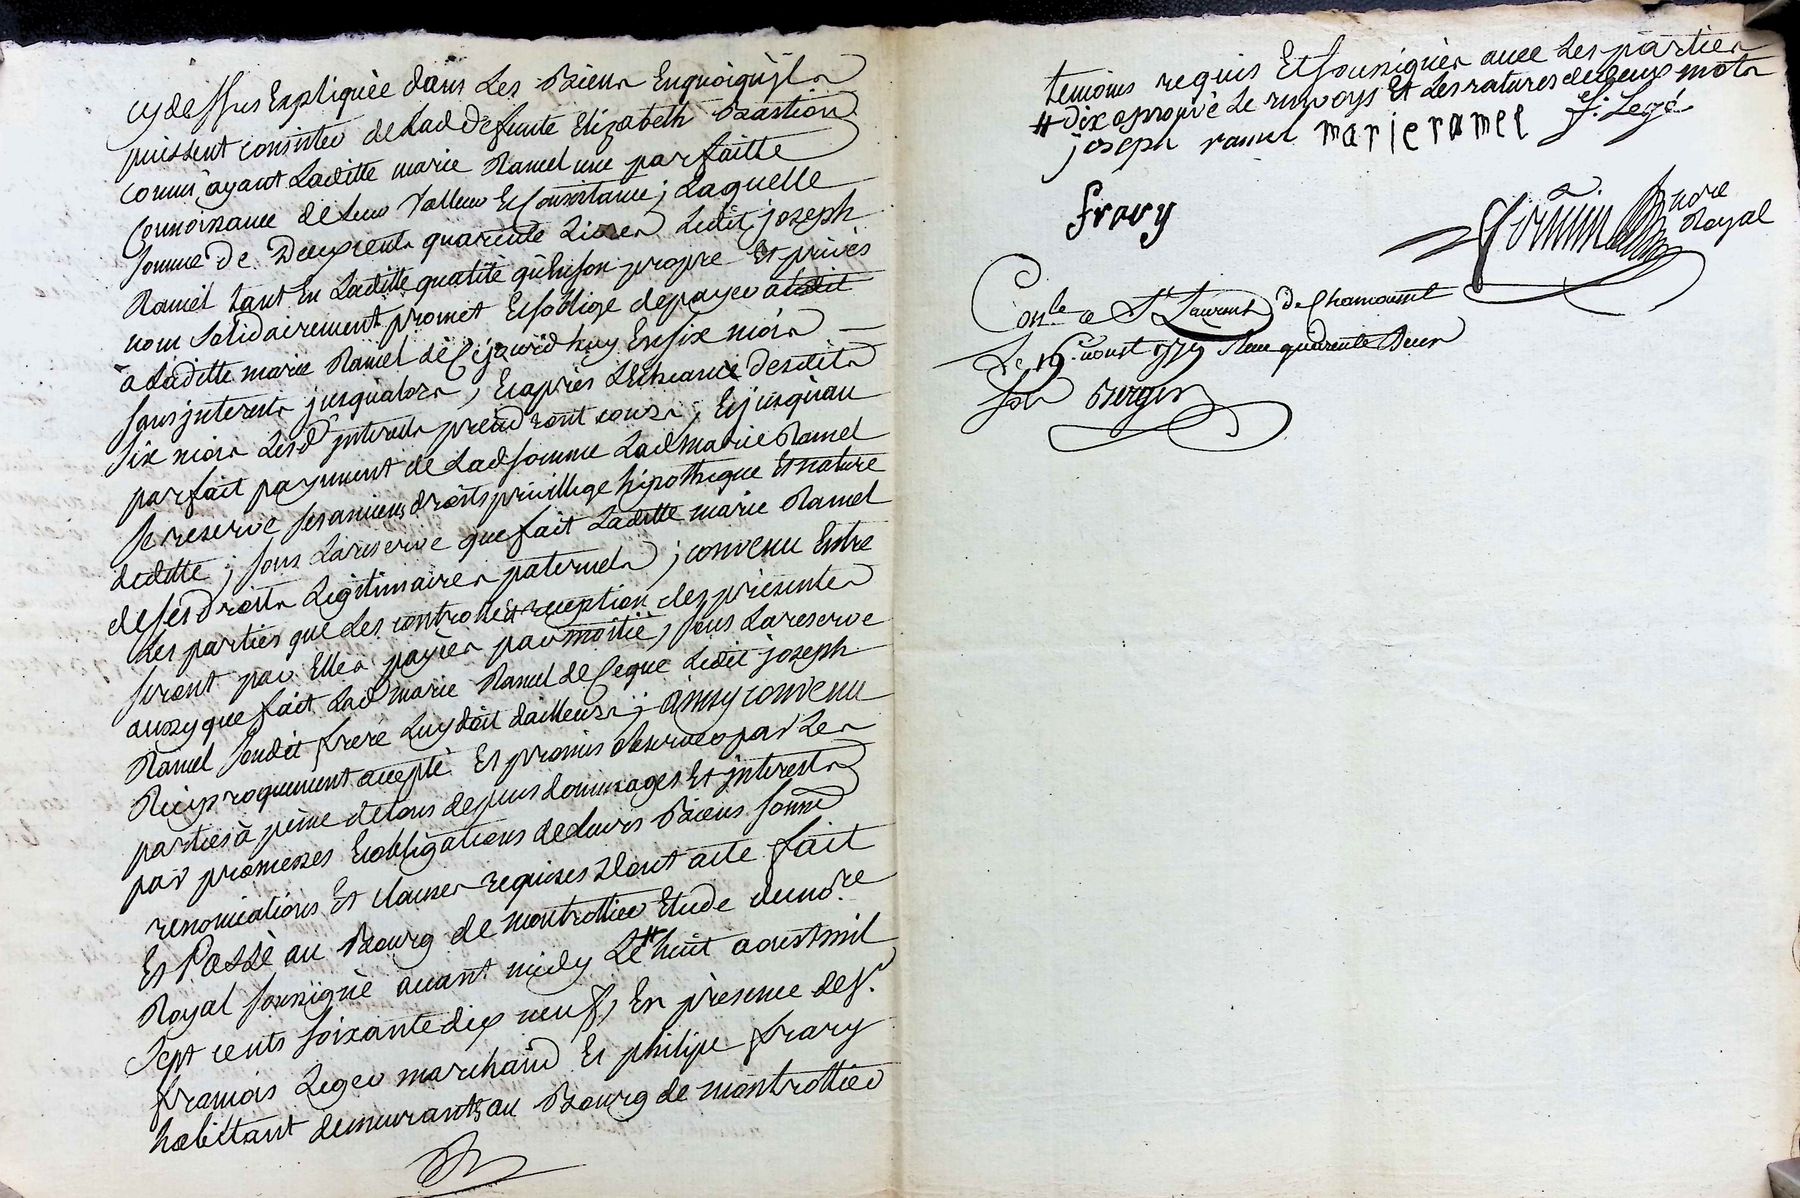 cy dessus Expliquée dans Les Biens En quoi qu'ils
puissent consister de Lad. Defunte Elizabeth Bastion
comm' ayant Laditte marie Ramel une parfaitte
Connoissance de Leur Valleur Et Consistance; Laquelle
somme de Deux cents quarente Livres Ledit joseph
Ramel tant En Laditte qualité qu'En son propre Et privés
nom solidairement promet Et s'oblige de payer
à Laditte marie Ramel dè Cejourd'huy En six mois —
sans jnterests jusqu'alors, Et après L'Echeance desdits
six mois Lesd. jnterests prendront cours, Et jusqu'au
parfait payement de Lad. somme Lad. marie Ramel
se reserve ses anciens droits privillege hipotheque Et nature
de dette; sous La reserve que fait Laditte marie Ramel
de ses Droits Legitimaires paternels; convenu Entre
Les parties que Les controlle Et reception des presentes
seront par Elles payées par moitié, sous La reserve
aussy que fait Lad. marie Ramel de Ceque Ledit joseph
Ramel sondit frere Luy doit d'ailleurs; ainsy convenu
Reciproquement accepté Et promis observer par Les
parties à peine de tous depens dommages Et jnterests
par promesses Et obligations de Leurs Biens soumis.
renonciations Et clauses requises Dont acte fait
Et Passé au Bourg de montrottier Etude du no.re
Royal soussigné avant midy Le # huit aoust mil
Sept cents soixante dix neuf, En presence de s.r
francois Leger marchand Et philipe frary
habittant demeurants au Bourg de montrottier
temoins requis Et soussignés avec Les parties
# dix aprouvé Le renvoys Et Les ratures de deux mots
joseph ramel marie ramel f. Legé
frary
no.re
Royal
Con.lé a S.t Laurent De Chamousset
Le 19. aoust 1779 Reçu quarente Deux
sols Berger